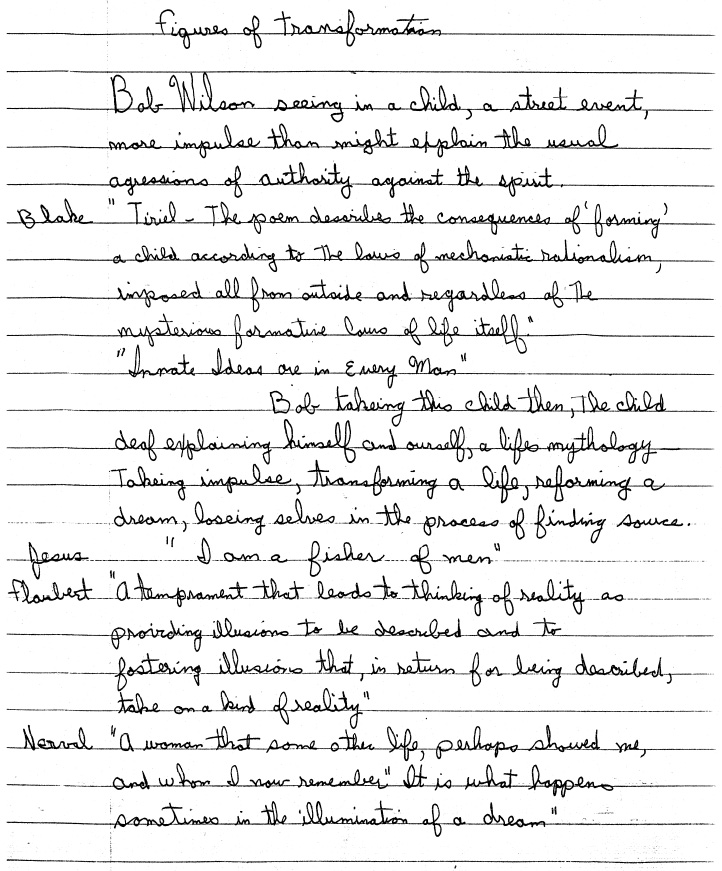 Figures of Transformation
Bob Wilson seeing in a child, a street event,
more impulse than might explain the usual
agressions of authority against the spirit.
Blake " Tiriel - The poem describes the consequences of 'forming'
a child according to The laws of mechanistic rationalism,
imposed all from outside and regardless of The
mysterious formative laws of life itself."
"Innate Ideas are in Every Man"
Bob takeing this child then, The child
deaf explaining himself and ourself, a lifes mythology
Takeing impulse, transforming a life, reforming a
dream, loseing selves in the process of finding source.
Jesus " I am a fisher of men"
Flaubert "A temprament that leads to thinking of reality as
proirding illusions to be described and to
fostering illusions that, in return for being described,
take on a kind of reality"
Nerval "A woman that some other life, perhaps showed me,
and whom I now remember" It is what happens
sometimes in the illumination of a dream"